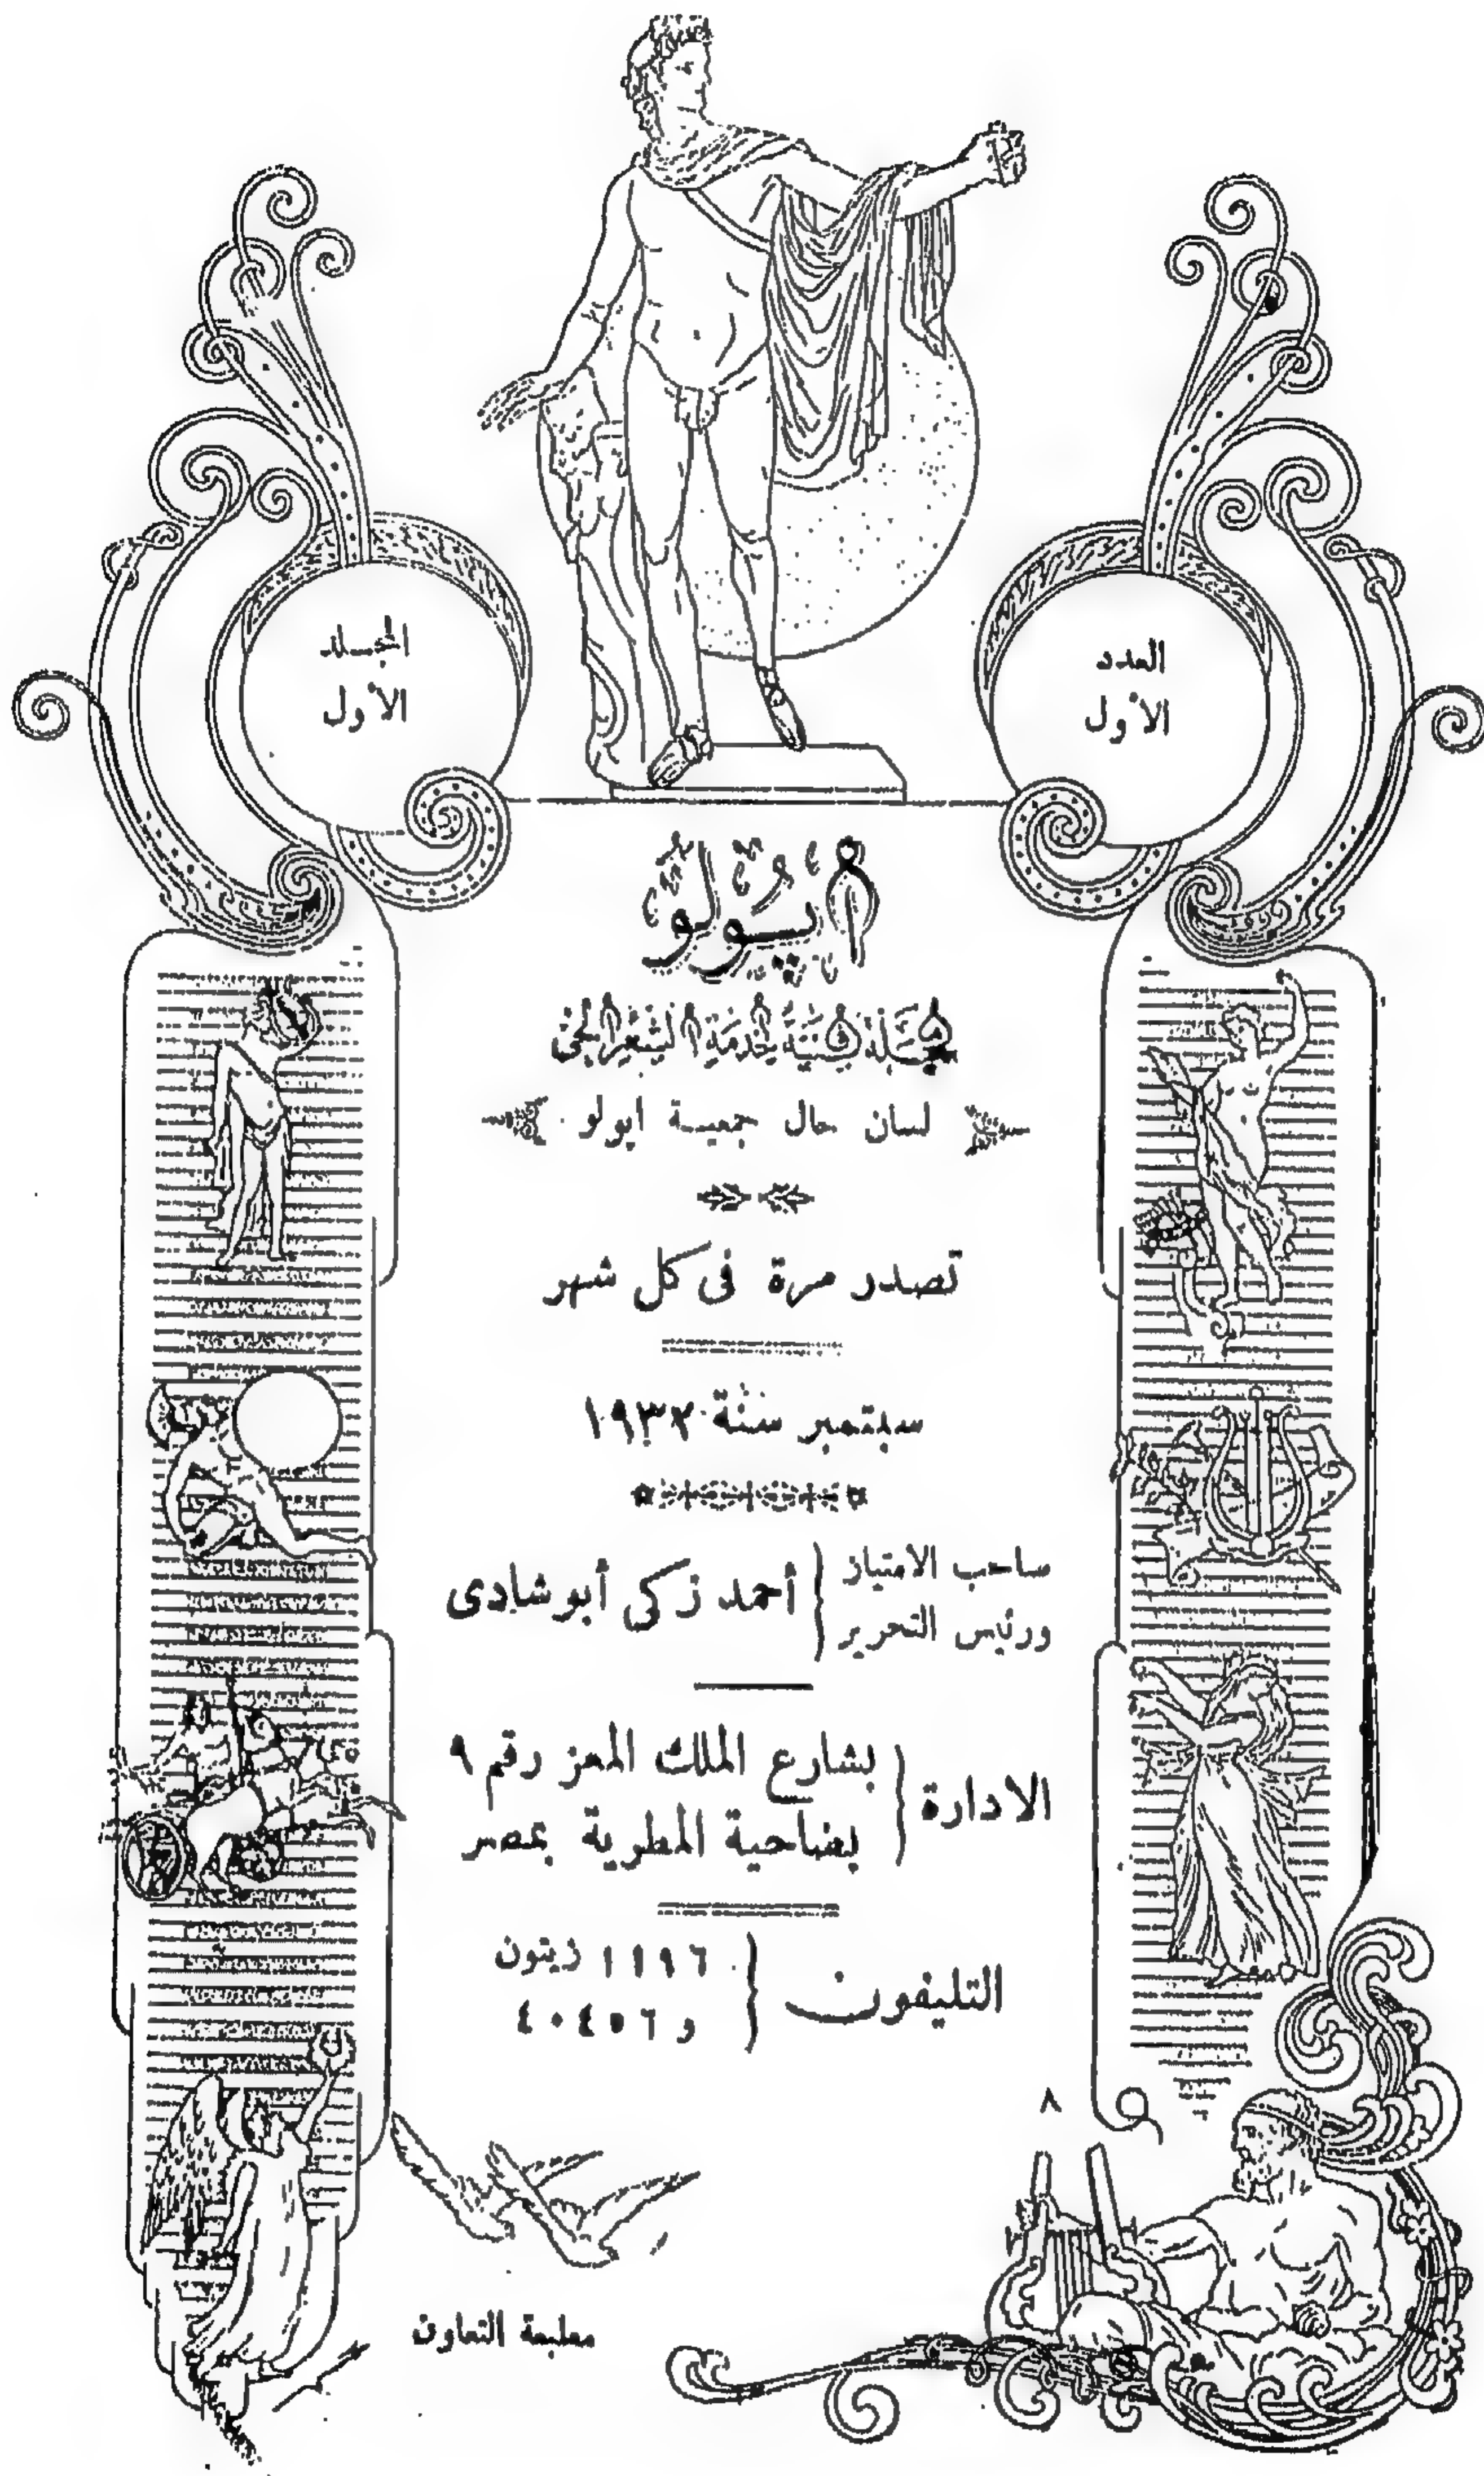 العدد
الأول
المجلد
الأول
أپولو
مجلة فنية لخدمة الشعر الحي
لسان حال جمعية ابولو
تصدر مرة فى كل شهر
سبتمبر سنة ١٩٣٢
صاحب الامتياز
ورئيس التحرير
أحمد زكى أبو شادى
الادارة
بشارع الملك المعز رقم ٩
بضاحية المطرية بمصر
التليفون
١١٩٦ زيتون
و ٤٠٤٥٦
٨
مطبعة التعاون